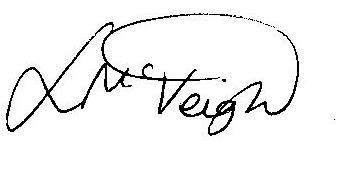 L McVeigh